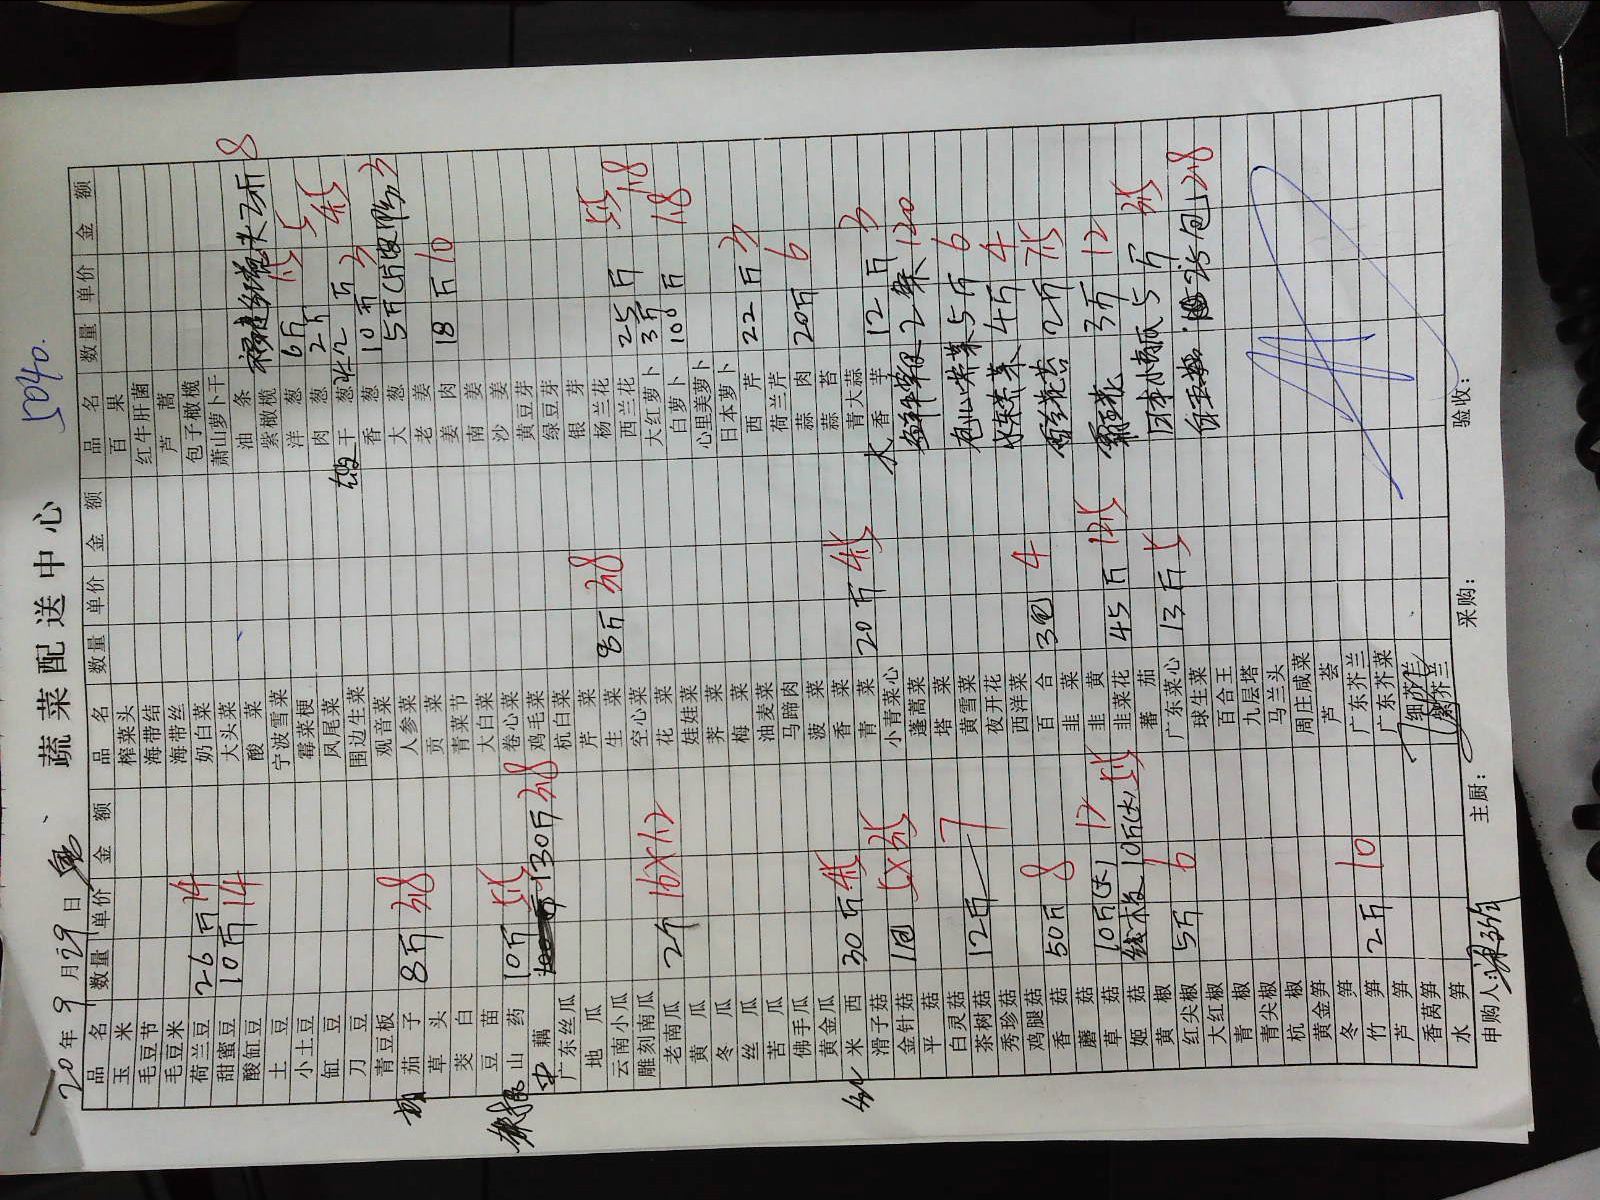 5040.
蔬菜配送中心
20 年 9 月 29 日
品名 数量 单价 金额 品名 数量 单价 金额 品名 数量 单价 金额
玉米 榨菜头 百果
毛豆节 海带结 红牛肝菌
毛豆米 海带丝 芦蒿
荷兰豆 26斤 14 奶白菜 包子橄榄
甜蜜豆 10斤 14 大头菜 萧山萝卜干
酸缸豆 酸菜 油条 8
土豆 宁波雪菜 紫橄榄
小土豆 霉菜梗 洋葱 6斤 1.5
缸豆 凤尾菜 肉葱 2斤 5
刀豆 围边生菜 干葱 2斤 4.5
青豆板 观音菜 香葱 10斤 3
茄子 8斤 3.8 人参菜 大葱 5斤 3
草头 贡菜 老姜
茭白 青菜节 姜肉 18斤 10
豆苗 大白菜 南姜
山药 10斤 5.5 卷心菜 沙姜
藕 130斤 3.8 鸡毛菜 黄豆芽
广东丝瓜 杭白菜 绿豆芽
地瓜 芹菜 银芽
云南小瓜 生菜 8斤 3.8 杨兰花
雕刻南瓜 空心菜 西兰花 25斤 5.5
老南瓜 2个 16×1.2 花菜 大红萝卜 3斤 1.8
黄瓜 娃娃菜 白萝卜 100斤 1.8
冬瓜 荠菜 心里美萝卜
丝瓜 梅菜 日本萝卜
苦瓜 油麦菜 西芹 22斤 3
佛手瓜 马蹄肉 荷兰芹
黄金瓜 菠菜 蒜肉 20斤 6
米西 30斤 4.5 香菜 蒜苔
滑子菇 青菜 20斤 4.5 青大蒜
金针菇 1包 5×3.5 小青菜心 水香芋 12斤 3
平菇 蓬蒿菜 2 120
白灵菇 塔菜
茶树菇 12斤 7 黄雪菜 5斤 6
秀珍菇 夜开花 4斤 4
鸡腿菇 西洋菜
香菇 50斤 8 百合 3包 4 2斤 7.5
蘑菇 韭菜
草菇 10斤(大) 12 韭黄 45斤 12.5 3斤 12
姬菇 10斤(大) 5.5 韭菜花 日本小南瓜 5斤 3.5
黄椒 蕃茄 13斤 5
红尖椒 5斤 6 广东菜心 25包 2.8
大红椒 球生菜
青椒 百合王
青尖椒 九层塔
杭椒 马兰头
黄金笋 周庄咸菜
冬笋 芦荟
竹笋 2斤 10 广东芥兰
芦笋 广东芥菜
香莴笋 细芥兰
水笋 紫芥兰
申购人: 主厨: 采购: 验收: